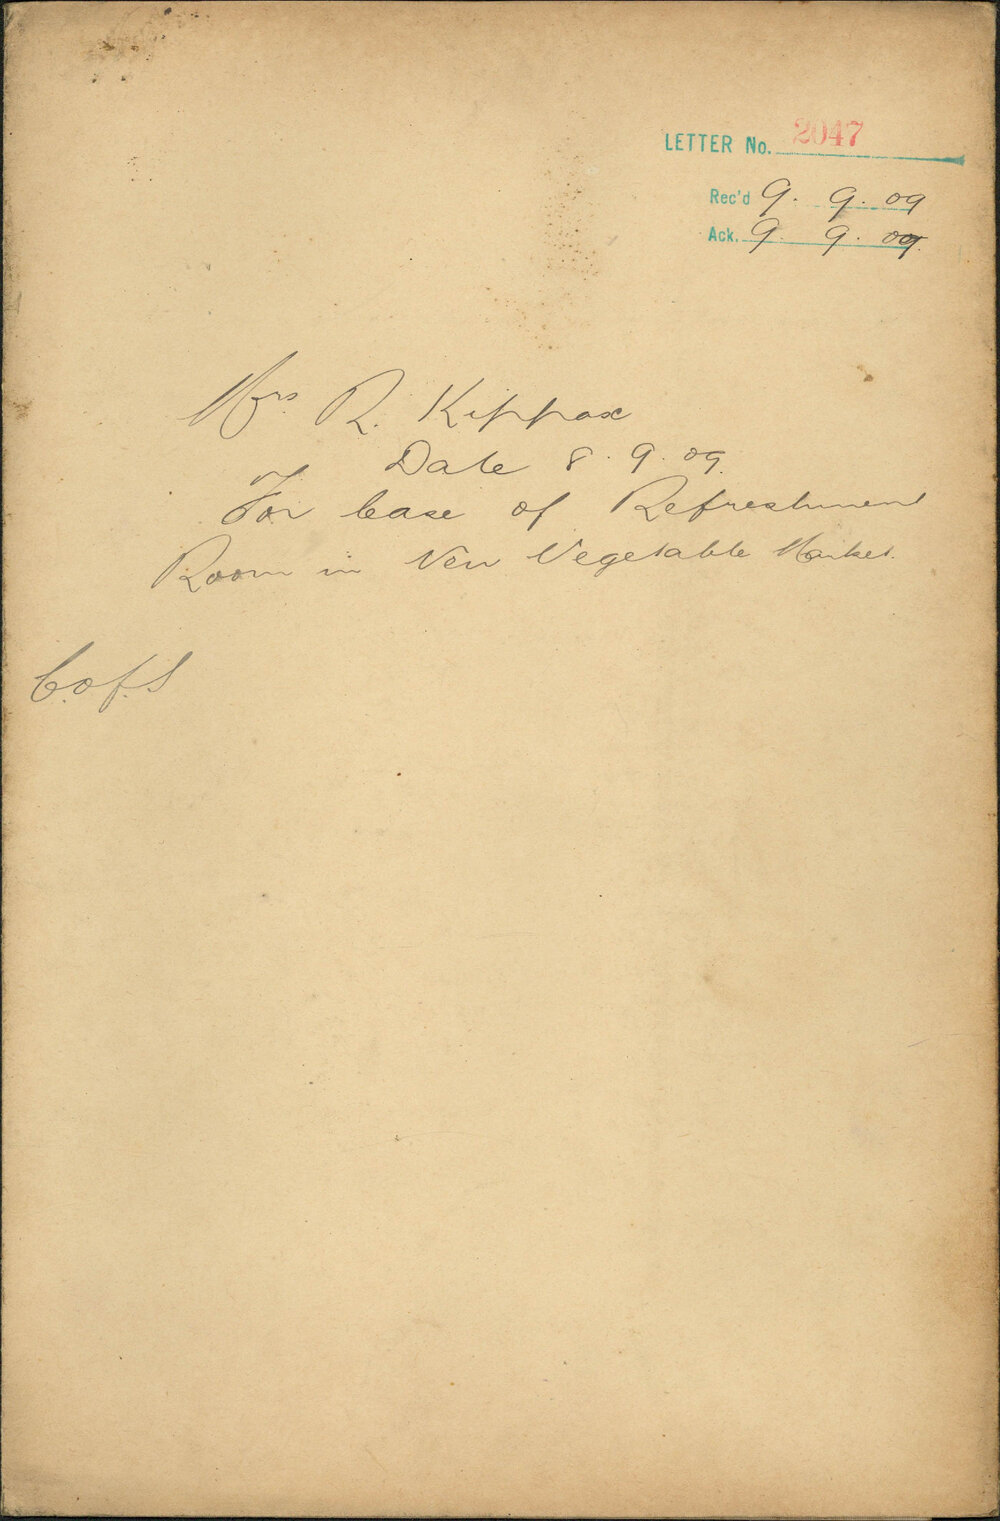 LETTER No. 2047
Rec'd 9. 9. 09
Ack. 9. 9. 09
Mrs R. Kippax
Date 8. 9. 09.
For lease of Refreshment
Room in New Vegetable Market.
C.of.S